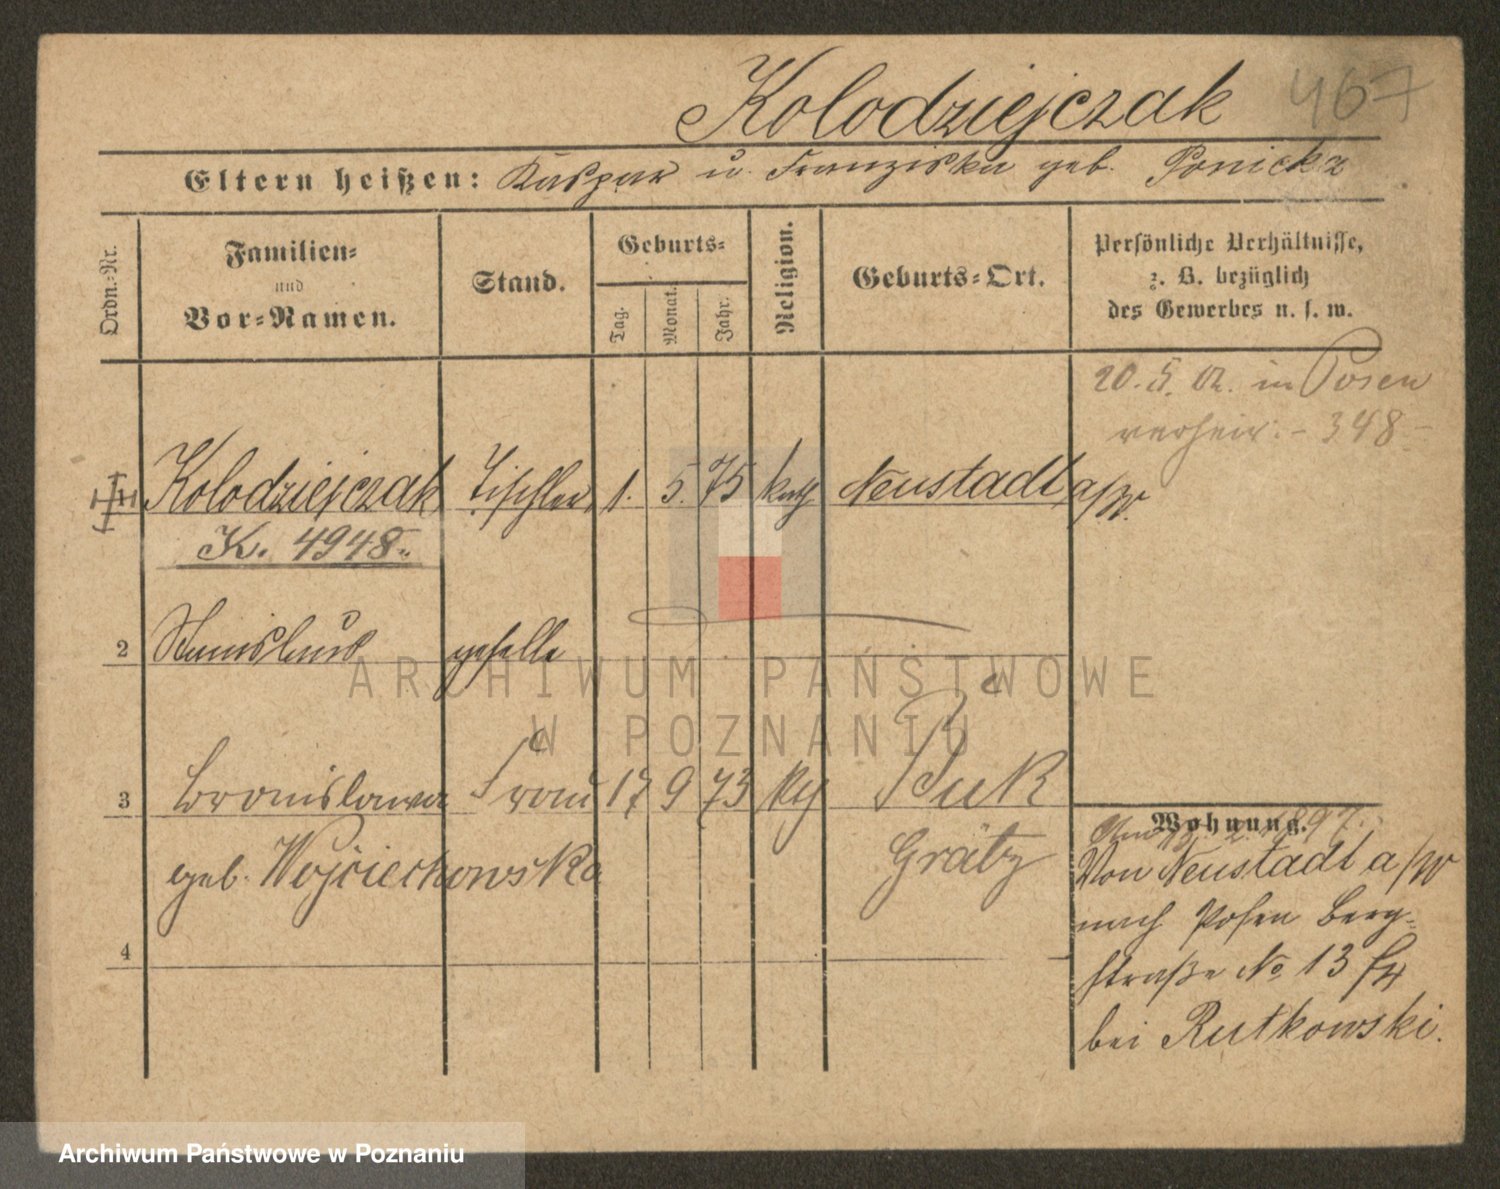 Kolodziejczak 467
Eltern heißen: Kaspar u. Franziska geb. Ponicka
Ordn.-Nr.
Familien-
und
Vor-Namen.
Stand.
Geburts-
Tag.
Monat.
Jahr.
Religion.
Geburts-Ort.
Persönliche Verhältnisse,
z. B. bezüglich
des Gewerbes u. s. w.
20. 5. 02. in Posen
verheir. - 348 -
Kolodziejczak Tischler 1. 5. 75 kath Neustadt a/W.
K. 4948.
2 Stanislaus geselle
3 Bronislawa Frau 17 9 73 Buk
geb. Wojciechowska Grätz
4
Wohnung.
Von Neustadt a/W
nach Posen Berg-
straße No 13
bei Rutkowski.
ARCHIWUM PAŃSTWOWE
W POZNANIU
Archiwum Państwowe w Poznaniu